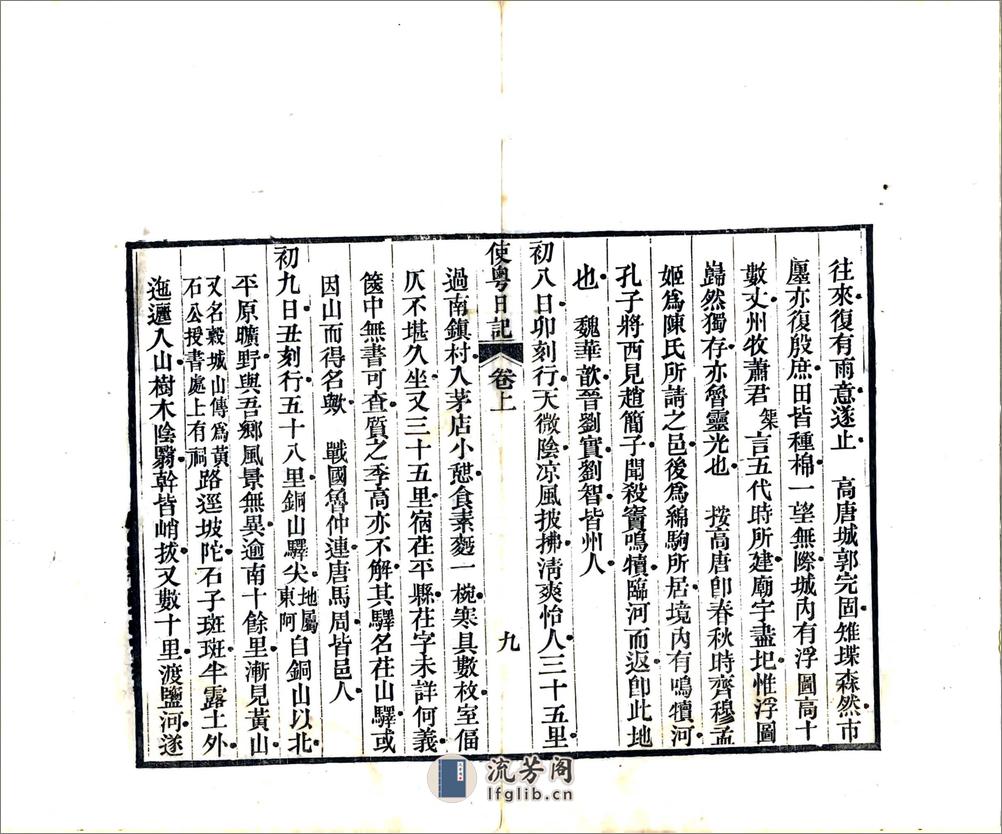 往來復有雨意遂止　高唐城郭完固雉堞森然市
廛亦復殷庶田皆種棉一望無際城內有浮圖高十
數丈州牧蕭君榘言五代時所建廟宇盡圮惟浮圖
巋然獨存亦魯靈光也　按高唐卽春秋時齊穆孟
姬爲陳氏所請之邑後爲綿駒所居境內有鳴犢河
孔子將西見趙簡子聞殺竇鳴犢臨河而返卽此地
也　魏華歆晉劉實劉智皆州人
初八日卯刻行天微陰凉風披拂淸爽怡人三十五里
使粵日記　卷上　九
過南鎭村入茅店小憇食素麪一椀寒具數枚室偪
仄不堪久坐又三十五里宿茌平縣茌字未詳何義
篋中無書可查質之季高亦不解其驛名茌山驛或
因山而得名歟　戰國魯仲連唐馬周皆邑人
初九日丑刻行五十八里銅山驛尖地屬東阿自銅山以北
平原曠野與吾鄕風景無異逾南十餘里漸見黃山
又名穀城山傳爲黃石公授書處上有祠路逕坡陀石子斑斑半露土外
迤邐入山樹木陰翳幹皆峭拔又數十里渡鹽河遂
流芳阁
lfglib.cn